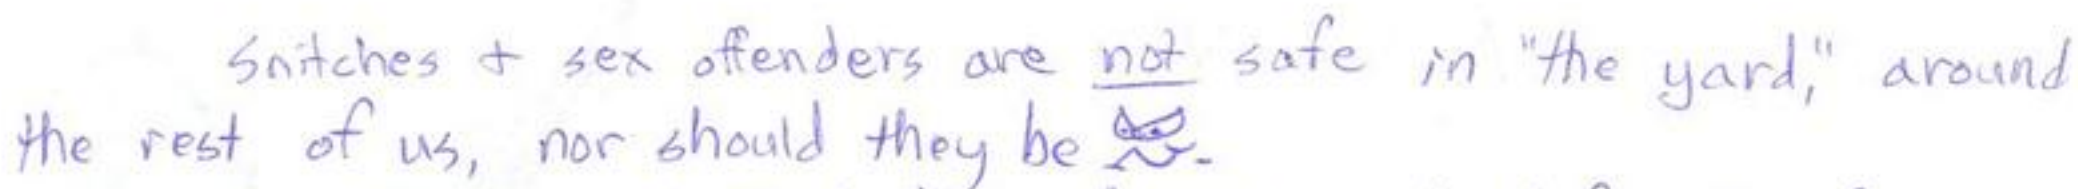 Snitches + sex offenders are not safe in "the yard," around
the rest of us, nor should they be .